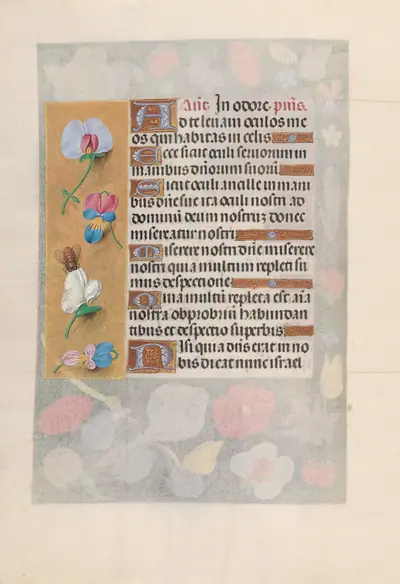 Añt. In odore. p̃us.
Ad te leuaui oculos me
os qui habitas in celis
Ecce sicut oculi seruorum in
manibus dñorum suorũ
Sicut oculi ancille in mani
bus dñe sue ita oculi nostri ad
dominũ deum nostrũ donec
misereatur nostri
Miserere nostri dñe miserere
nostri quia multum repleti su
mus despectione
Quia multũ repleta est aĩa
nostra obprobriũ habundan
tibus et despectio superbis
Nisi quia dñs erat in no
bis dicat nunc israel